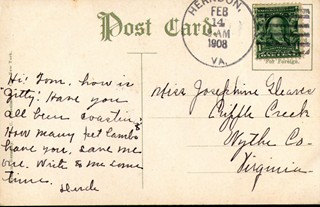 Post Card
HERNDON,
FEB
14
AM
1908
VA.
For Foreign.
Hi! Tom, how is
"Gitty". Have you
all been coasting?
How many pet lambs
have you, save me
one. Write to me some
time.
Miss Josephine Gleaves
Cripple Creek
Wythe Co-
Virginia-